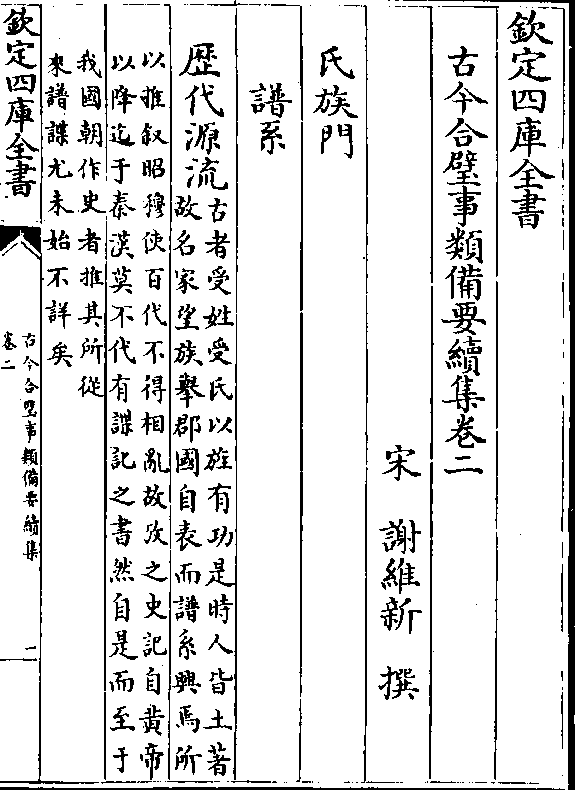 欽定四庫全書
古今合璧事類備要續集卷二
宋 謝維新 撰
氏族門
譜系
歴代源流
古者受姓受氏以旌有功是時人皆土著
故名家望族舉郡國自表而譜系興焉所
以推叙昭穆使百代不得相亂故攷之史記自黄帝
以降迄于秦漢莫不代有諜記之書然自是而至于
我國朝作史者推其所從
來譜諜尤未始不詳矣
欽定四庫全書
古今合璧事類備要續集
卷二
一